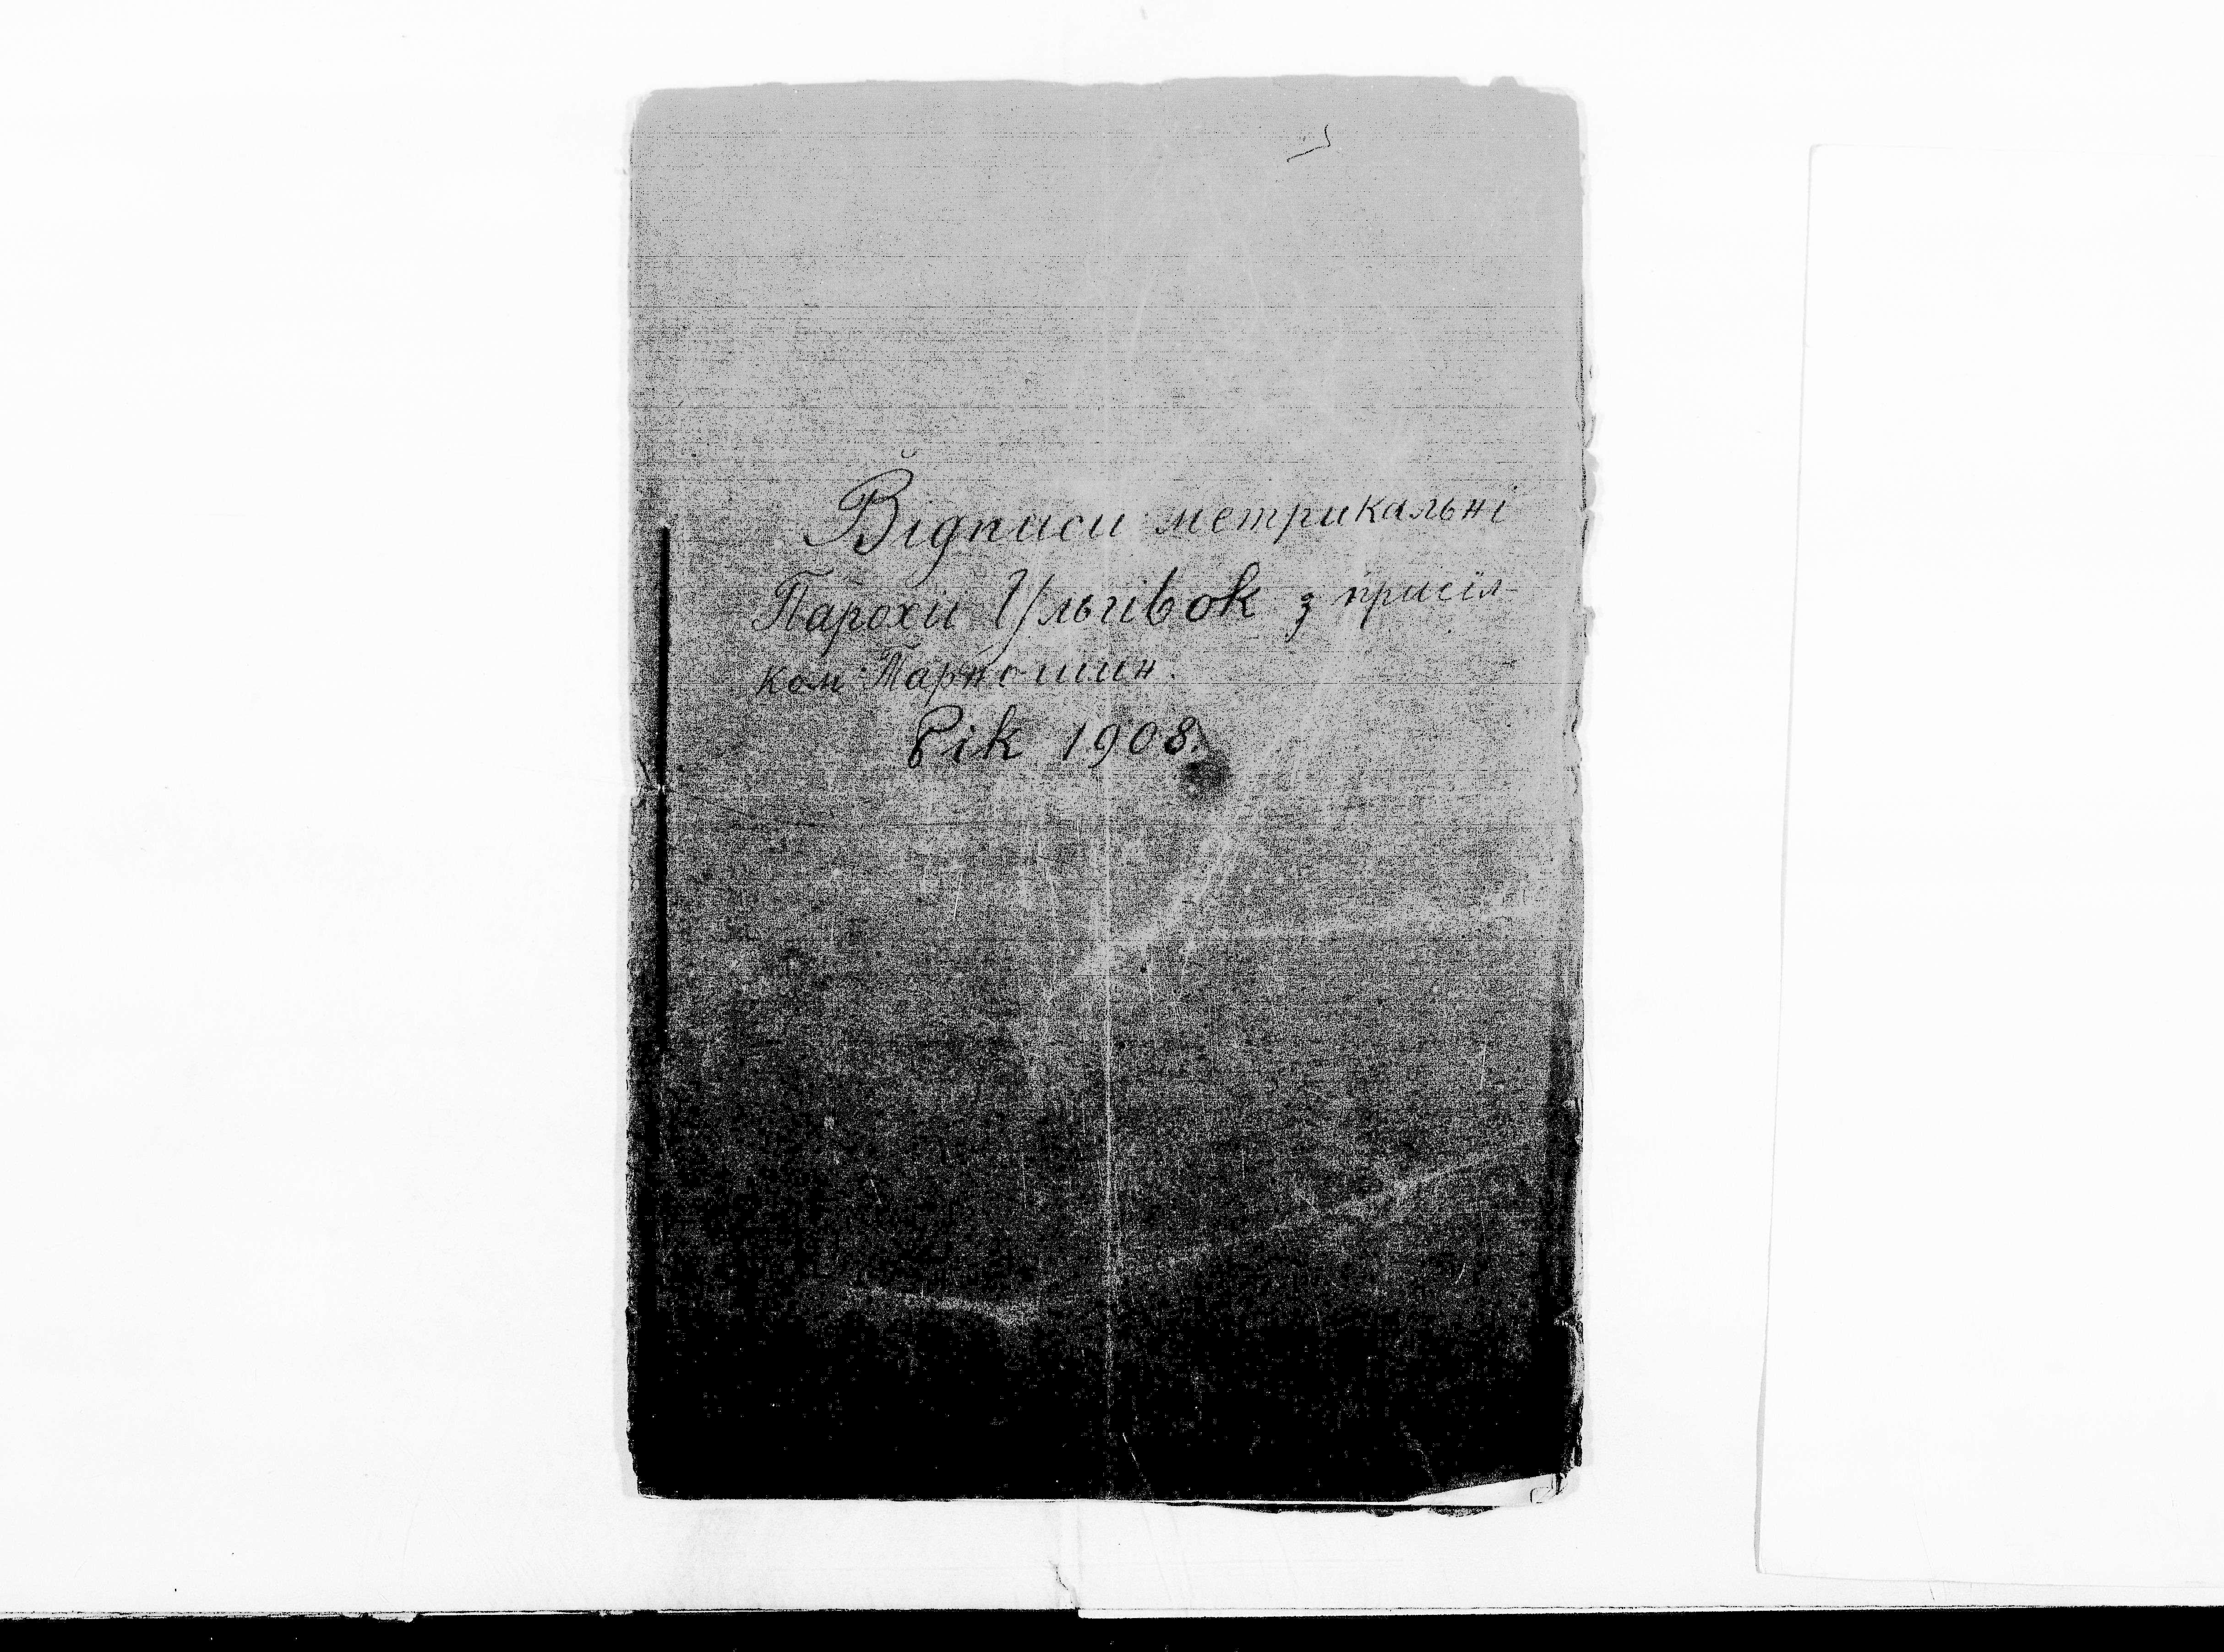 Відписи метрикальні
Парохіі Ульгівок з присіл-
ком Тарношин.
Рік 1908.